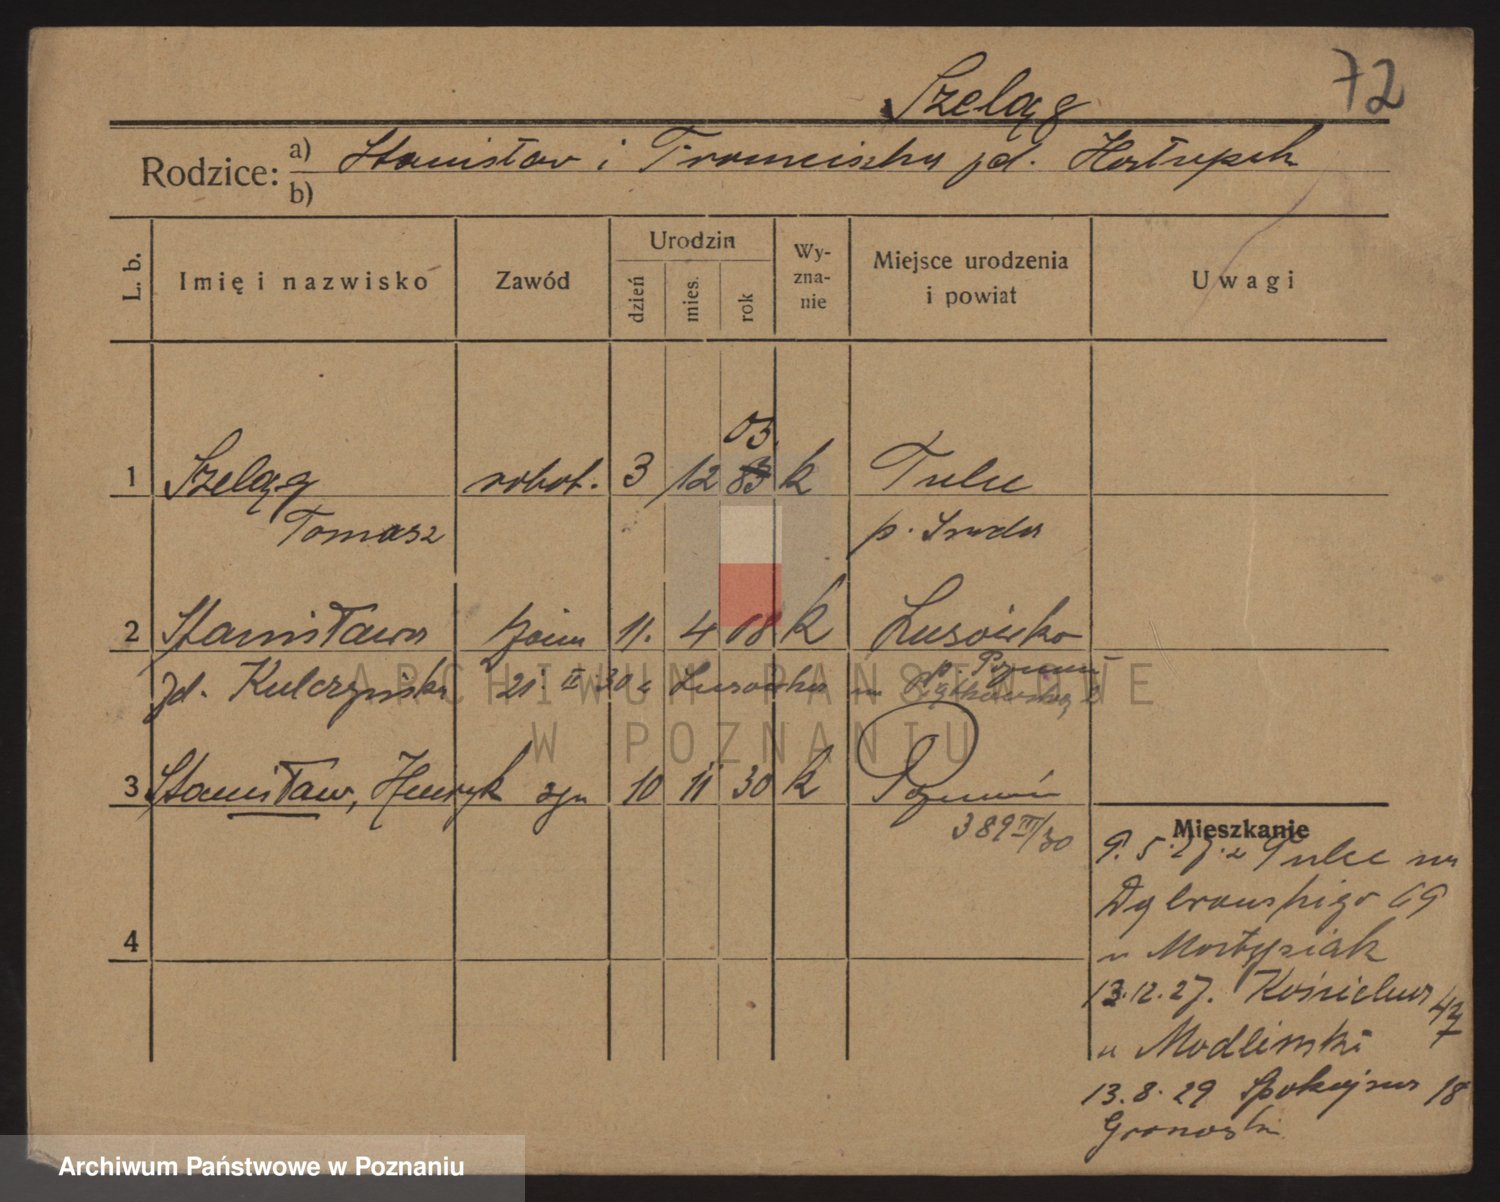 72
Szeląg
Rodzice: a) Stanisław i Franciszka zd.
b)
L. b.
Imię i nazwisko
Zawód
Urodzin
dzień
mies.
rok
Wy-
zna-
nie
Miejsce urodzenia
i powiat
Uwagi
03.
1 Szeląg robot. 3 12 83 k Tulce
Tomasz p. Środa
2 Stanisława żona 11. 4 08 k Lusówko
p. Poznań
zd. Kulczyńska 21. II 30 z Lusówka
3 Stanisław, Henryk syn 10 11 30 k Poznań
389 III/30
Mieszkanie
9. 5. 27. z Tulce na
Dąbrowskiego 69
u
13.12.27. Kościelna 47
u Modlinski
13.8.29 Spokojna 18
Gronoski
4
ARCHIWUM PAŃSTWOWE
W POZNANIU
Archiwum Państwowe w Poznaniu